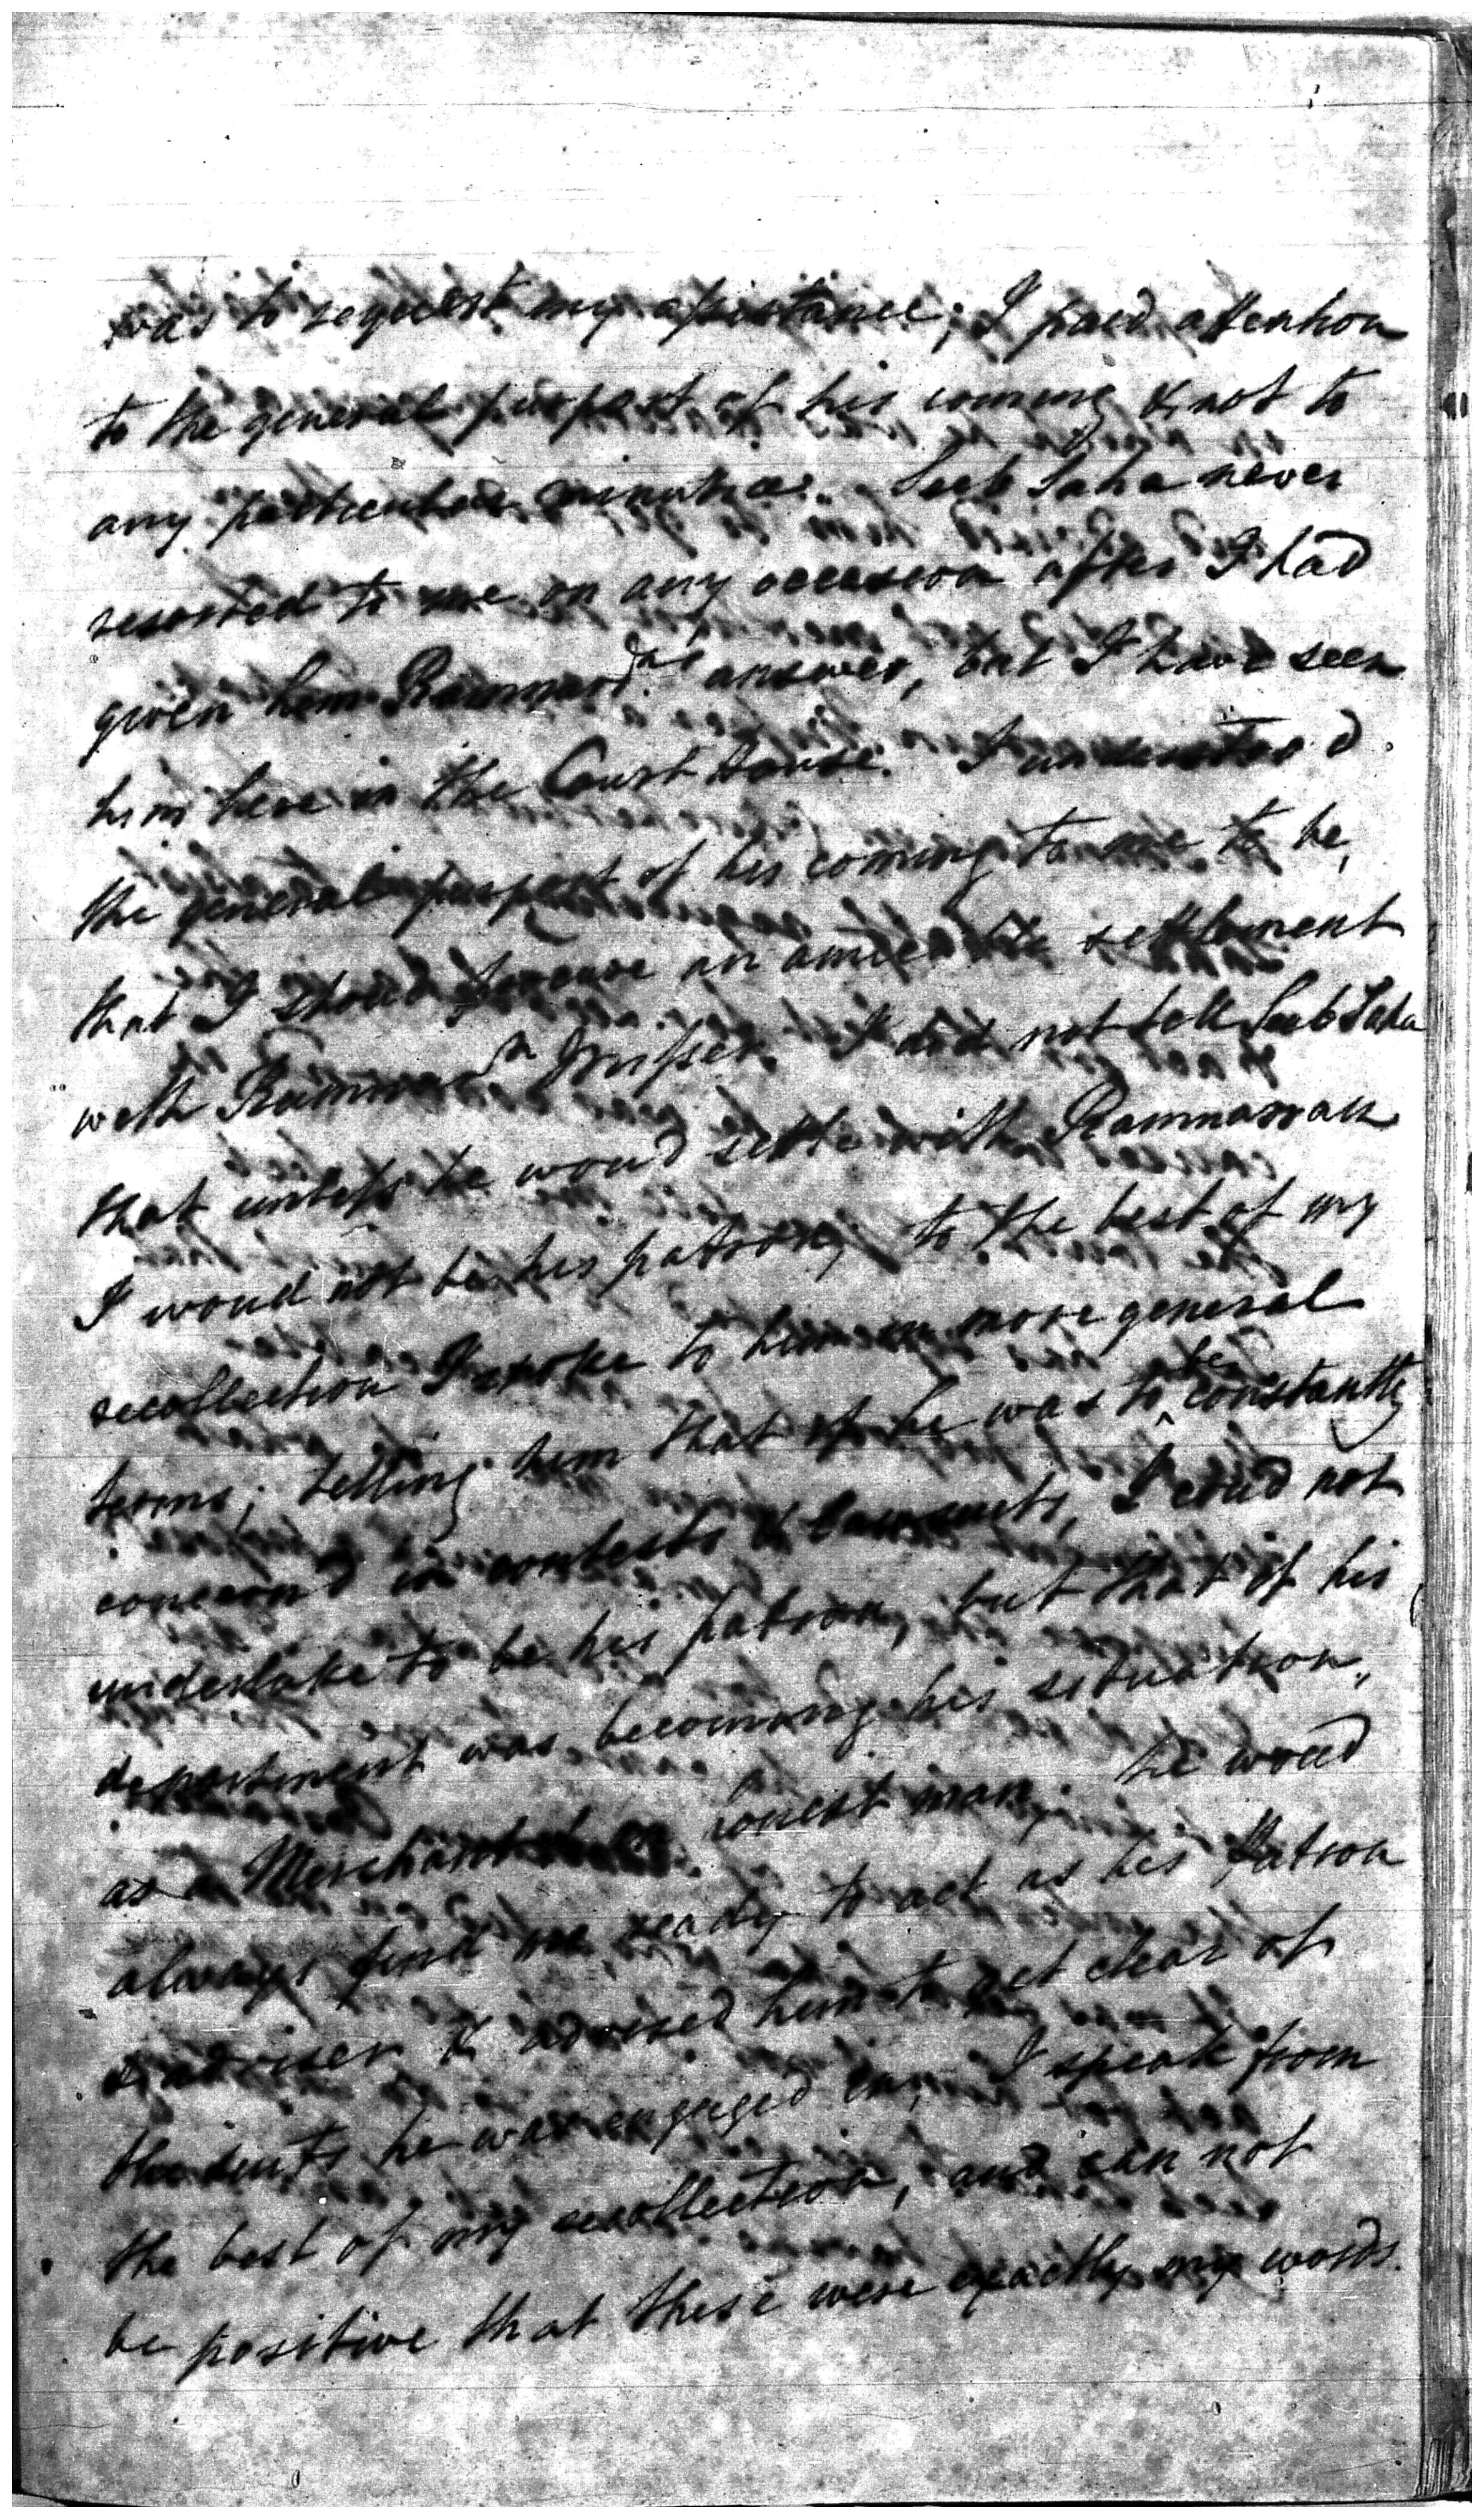 was to request my assistance; I paid attention
to the general purport of his coming & not to
any particular minutiae. Seeb Saha never
resorted to me on any occasion after I had
given him answer, but I have seen
him here in the Court house. I understood
the general purport of his coming to me to be,
that I shoud procure an amicable settlement
with Misser. I did not tell Seeb Saha
that unless he woud settle with Ramnarrain
I woud not be his patron, to the best of my
recollection I spoke to him in more general
terms; telling him that if he was to be constantly
concern'd in contests & lawsuits, I coud not
undertake to be his patron, but that if his
deportment was becoming his situation,
as a Merchant honest man, he woud
always find me ready to act as his Patron
& adviser & advised him to get clear of
the suits he was engaged in; I speak from
the best of my recollection, and can not
be positive that these were exactly my words.